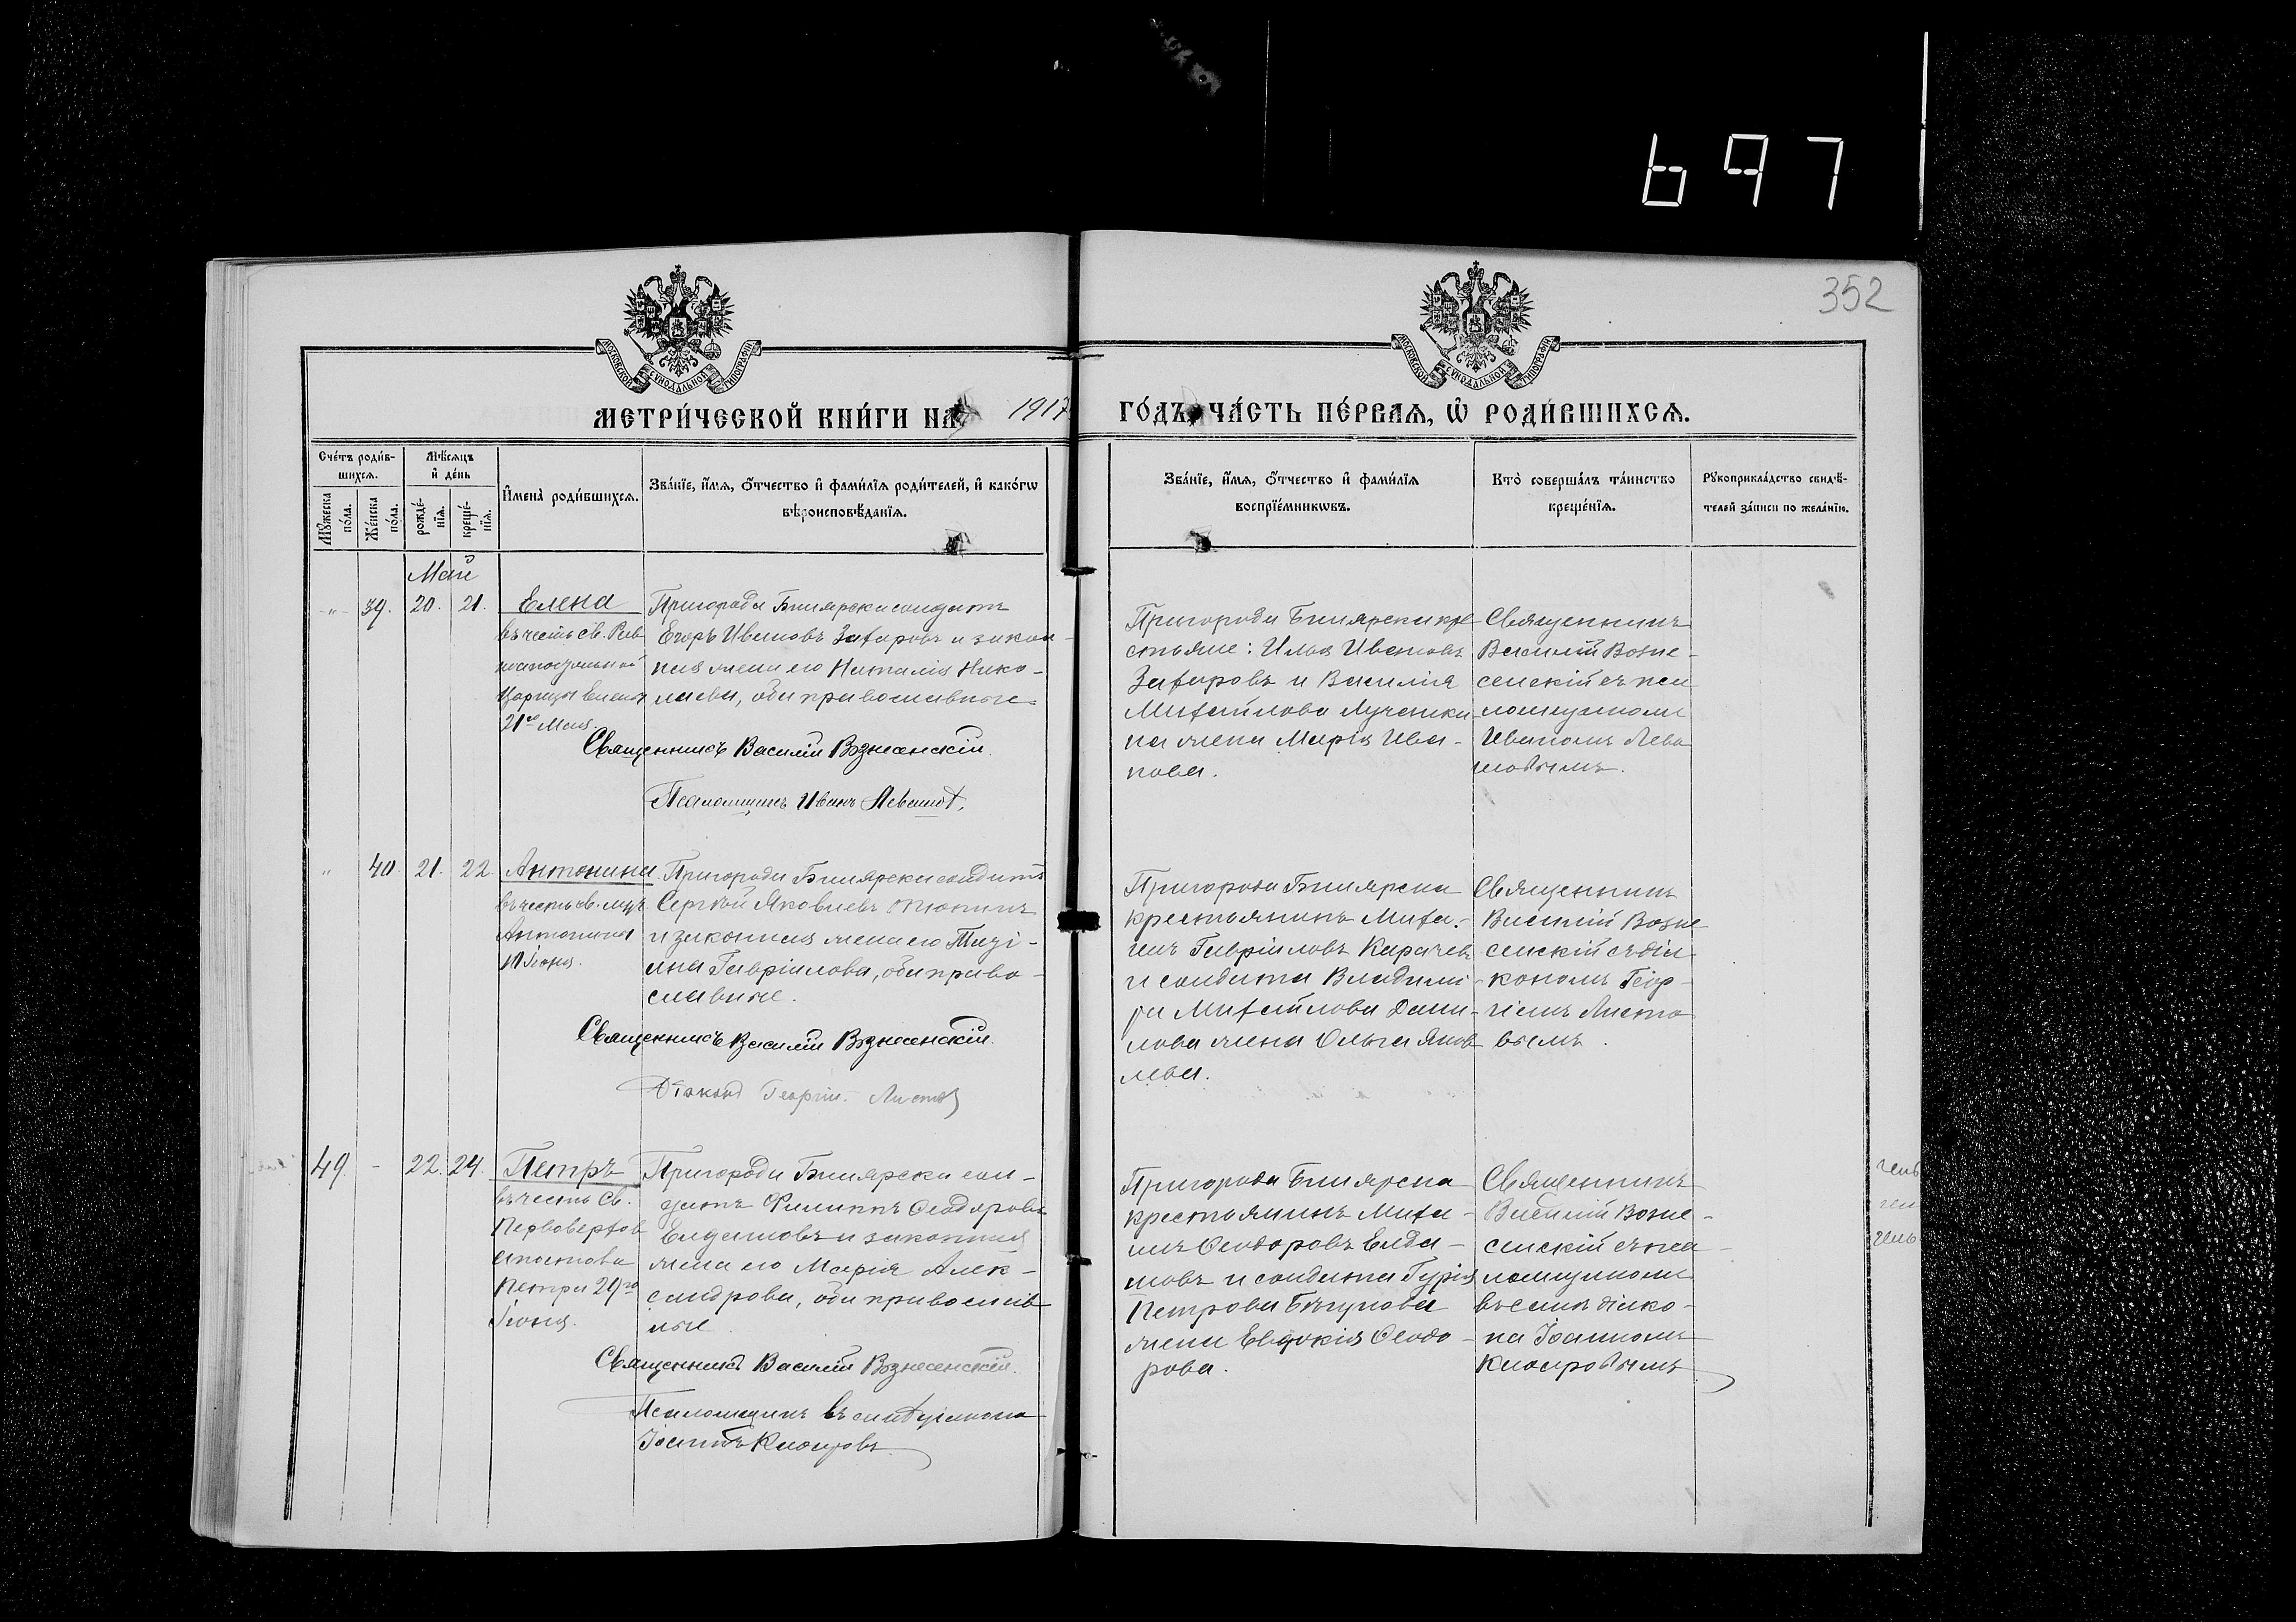 697
352
МОСКОВСКОЙ СѴНОДАЛЬНОЙ ТИПОГРАФІИ
МОСКОВСКОЙ СѴНОДАЛЬНОЙ ТИПОГРАФІИ
МЕТРИ́ЧЕСКОЙ КНИ́ГИ НА 1917 ГО́ДЪ, ЧА́СТЬ ПЕ́РВАѦ, Ѡ҆ РОДИ́ВШИХСѦ.
Сче́тъ роди́в-
шихсѧ.
Мꙋ́жеска
по́ла.
Же́нска
по́ла.
Мѣ́сѧцъ
и҆ де́нь
рожде́-
нїѧ.
креще́-
нїѧ.
И҆мена̀ роди́вшихсѧ.
Зва́нїе, и҆́мѧ, ѻ҆́тчество и҆ фами́лїѧ роди́телей, и҆ како́гѡ
вѣроисповѣ́данїѧ.
Зва́нїе, и҆́мѧ, ѻ҆́тчество и҆ фами́лїѧ
воспрїе́мникѡвъ.
Кто̀ соверша́лъ та́инство
креще́нїѧ.
Рꙋкоприкла́дство свидѣ́-
телей за́писи по жела́нїю.
Май
„ 39. 20. 21.
Елена
въ честь св. Рав
ноапостольной
Царицы Елены
21го Мая.
Пригорода Билярска солдатъ
Егоръ Ивановъ Захаровъ и закон-
ная жена его Наталія Нико-
лаева, оба православные.
Священникъ Василій Вознесенскій.
Псаломщикъ Иванъ Левашов.
Пригорода Билярска кре
стьяне: Илья Ивановъ
Захаровъ и Василія
Михайлова Лученки
на жена Марія Ива-
нова.
Священникъ
Василій Возне-
сенскій съ пса
ломщикомъ
Иваномъ Лева
шовымъ.
„ 40. 21. 22.
Антонина
въ честь св. муч.
Антонины
10 Іюня.
Пригорода Билярска солдатъ
Сергѣй Яковлевъ Тюнинъ
и законная жена его Тизі-
яна Гавріилова, оба право-
славные.
Священникъ Василій Вознесенскій.
Діаконъ Георгій Листов
Пригорода Билярска
крестьянинъ Миха-
илъ Гавріиловъ Карачев
и солдата Владими-
ра Михайлова Дани-
лова жена Ольга Яков
лева.
Священникъ
Василій Возне
сенскій съ діа-
кономъ Геор-
гіемъ Листо
вымъ.
49. - 22. 24.
Петръ
въ честь св.
Первоверхов
апостола
Петра 29го
Іюня.
Пригорода Билярска сол-
датъ Филиппъ Ѳеодоровъ
Елдашовъ и законная
жена его Марія Алек-
сандрова, оба православ
ные.
Священникъ Василій Вознесенскій.
Псаломщикъ въ санѣ діакона
Іоаннъ
Пригорода Билярска
крестьянинъ Миха-
илъ Ѳеодоровъ Елда-
шовъ и солдата Гурія
Петрова Бѣгунова
жена Евдокія Ѳеодо-
рова.
Священникъ
Василій Возне-
сенскій съ пса-
ломщикомъ
въ санѣ діако-
на Іоанномъ